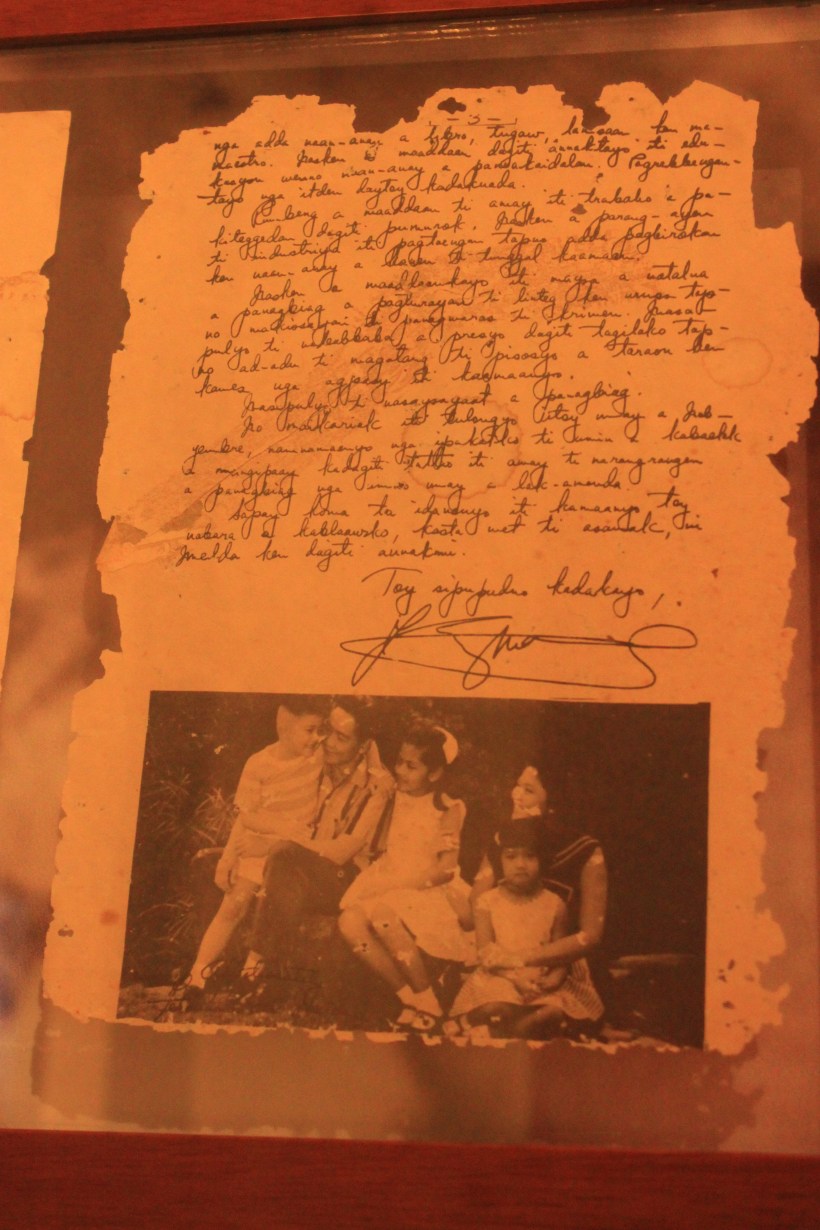 - 3 -
nga adda naan-anay a libro, tugaw, lamisaan ken ma-
estro. Nasken a maaddaan dagiti annaktayo iti edu-
kasyon wenno naan-anay a pannakaidalan. Pagrebbengan-
tayo nga itden daytoy kadakuada.
Rumbeng a maaddaan ti amay iti trabaho a pa-
kiteggedan dagiti pumurok. Nasken a parang-ayen
ti industriya iti pagtaengan tapno adda pagbirokan
ken naan-anay a kanen ti tunggal kaamaan.
Nasken a maaddaankayo iti mayor a natalna
a panagbiag a pagturayan ti linteg ken urnos tap-
no maliklikan ti panagwaras ti krimen. Masa-
pulyo ti nababbaba a presyo dagiti tagilako tap-
no ad-adu ti magatang ti pisosyo a taraon ken
kawes nga agpaay iti kaamaanyo.
Masapulyo ti nasaysayaat a panagbiag.
No maakariak iti tulongyo itoy umay a Nob-
yembre, namnamaenyo nga ipakatko ti amin a kabaelak
a mangipaay kadagiti tattao iti amay ti narangrangen
a panagbiag nga umno unay a dak-amenda.
Sapay koma ta idanonyo iti kamaanyo toy
nabara a kablaawko, kasta met ti asawak, ni
Imelda ken dagiti annakmi.
Toy sipupudno kadakayo,